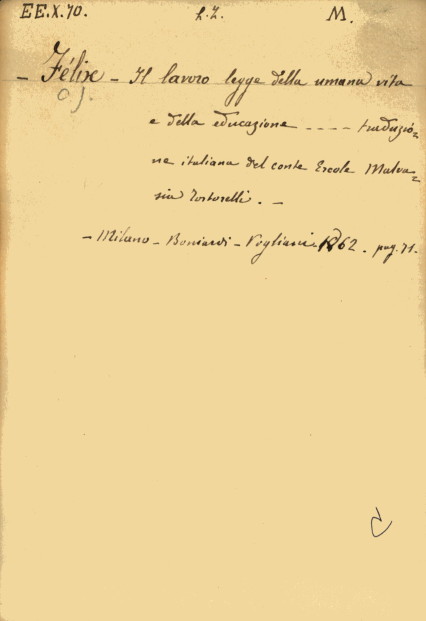 EE.X.70. L.I. M.
- Félix - Il lavoro legge della umana vita
e della educazione ---- traduzio=
ne italiana del conte Ercole Malva=
sia Tortorelli. -
- Milano - Boniardi - Pogliani 1862. pag. 71.